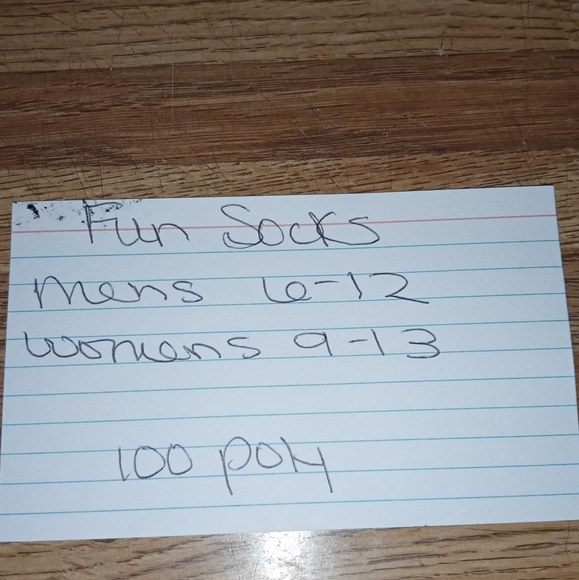 Fun Socks
mens 6-12
womens 9-13
100 poly